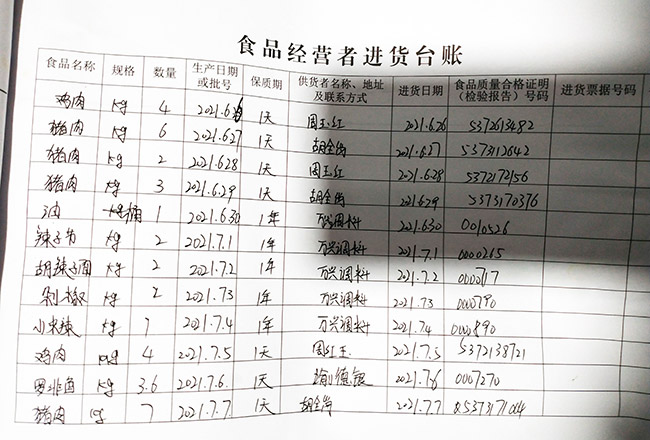 食品经营者进货台账
食品名称 规格 数量 生产日期或批号 保质期 供货者名称、地址及联系方式 进货日期 食品质量合格证明(检验报告)号码 进货票据号码
鸡肉 kg 4 2021.6.26 1天 周玉红 2021.6.26 5372613482
猪肉 kg 6 2021.6.27 1天 2021.6.27 5373112642
猪肉 kg 2 2021.6.28 1天 周玉红 2021.6.28 5372172156
猪肉 kg 3 2021.6.29 1天 2021.6.29 5373170376
油 桶 1 2021.6.30 1年 万兴调料 2021.6.30 0010526
辣子节 kg 2 2021.7.1 1年 万兴调料 2021.7.1 0000265
胡辣子面 kg 2 2021.7.2 1年 万兴调料 2021.7.2 0000717
剁椒 kg 2 2021.7.3 1年 万兴调料 2021.7.3 0000790
小米辣 kg 1 2021.7.4 1年 万兴调料 2021.7.4 0000890
鸡肉 kg 4 2021.7.5 1天 周红玉 2021.7.5 5372138721
罗非鱼 kg 3.6 2021.7.6 1天 2021.7.6 0007270
猪肉 kg 7 2021.7.7 1天 2021.7.7 5373171004